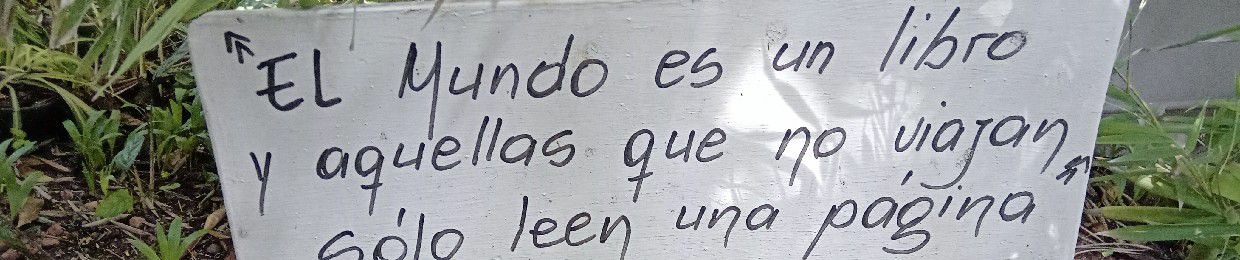 "El Mundo es un libro
y aquellas que no viajan
sólo leen una página"